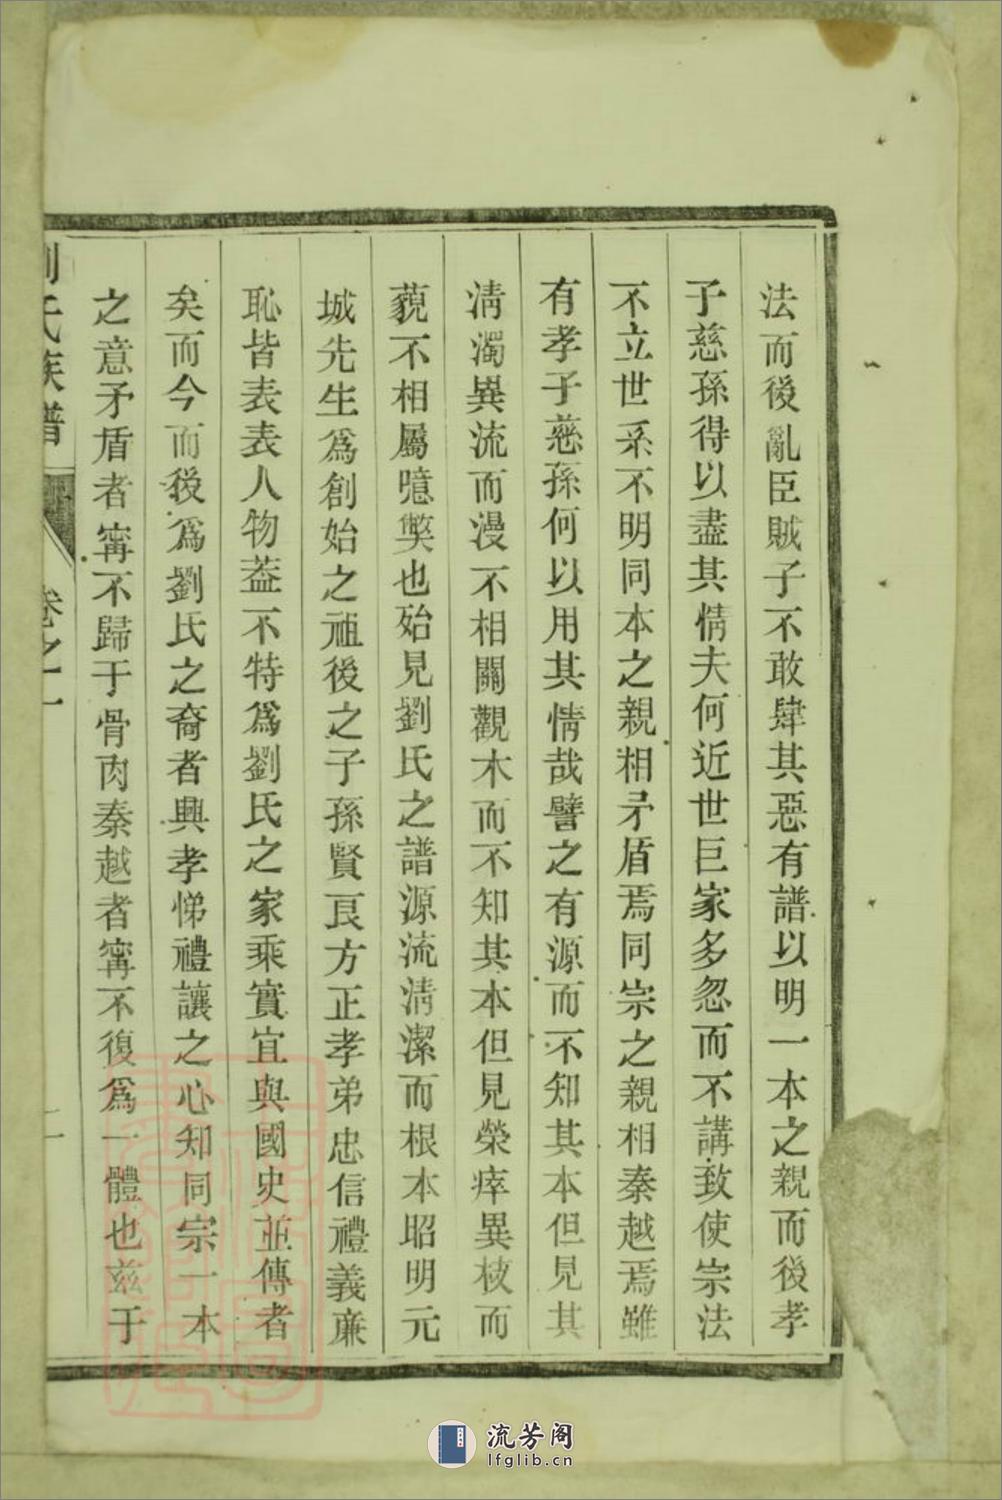 法而後亂臣賊子不敢肆其惡有譜以明一本之親而後孝
子慈孫得以盡其情夫何近世巨家多忽而不講致使宗法
不立世系不明同本之親相矛盾焉同宗之親相秦越焉雖
有孝子慈孫何以用其情哉譬之有源而不知其本但見其
清濁異流而漫不相關觀木而不知其本但見榮瘁異枝而
藐不相屬噫獘也殆見劉氏之譜源流清潔而根本昭明元
城先生爲創始之祖後之子孫賢良方正孝弟忠信禮義廉
恥皆表表人物葢不特爲劉氏之家乘實宜與國史並傳者
矣而今而後爲劉氏之裔者興孝悌禮讓之心知同宗一本
之意矛盾者寗不歸于骨肉秦越者寗不復爲一體也玆于
劉氏族譜 卷之一 二
流芳阁
lfglib.cn